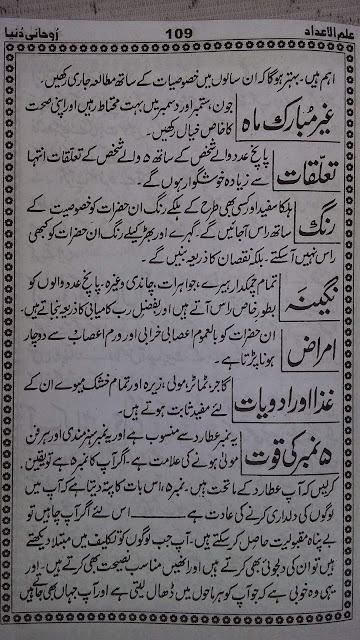 علم الاعداد 109 روحانی دُنیا
اہم ہیں۔ بہتر ہوگا کہ ان سالوں میں خصوصیات کے ساتھ مطالعہ جاری رکھیں۔
غیر مُبارک ماہ
جون، ستمبر اور دسمبر میں بہت محتاط رہیں اور اپنی صحت
کا خاص خیال رکھیں۔
تعلقات
پانچ عدد والے شخص کے ساتھ ۵ والے شخص کے تعلقات انتہا
سے زیادہ خوشگوار ہوں گے۔
رنگ
ہلکا سفید اور کسی بھی طرح کے ہلکے رنگ ان حضرات کو خصوصیت کے
ساتھ راس آجائیں گے۔ گہرے اور بھڑکیلے رنگ ان حضرات کو کبھی
راس نہیں آسکتے۔ بلکہ نقصان کا ذریعہ بنیں گے۔
نگینہ
تمام چمکدار ہیرے، جواہرات، چاندی وغیرہ۔ پانچ عدد والوں کو
بطور خاص راس آتے ہیں اور بفضل رب کامیابی کا ذریعہ بنجاتے ہیں۔
امراض
ان حضرات کو بالعموم اعصابی خرابی اور ورم اعصاب سے دوچار
ہونا پڑتا ہے۔
غذا اور ادویات
گاجر، ٹماٹر، مولی، زیرہ اور تمام خشک میوے ان کے
لئے مفید ثابت ہوتے ہیں۔
۵ نمبر کی قوت
یہ نمبر عطارد سے منسوب ہے اور یہ نمبر ہنرمندی اور ہر فن
مولیٰ ہونے کی علامت ہے۔ اگر آپ کا نمبر ۵ ہے تو یقین
کرلیں کہ آپ عطارد کے ماتحت ہیں۔ نمبر ۵، اس بات کا پتہ دیتا ہے کہ آپ میں
لوگوں کی دلداری کرنے کی عادت ہے ــــــ اس لئے اگر آپ چاہیں تو
بے پناہ مقبولیت حاصل کرسکتے ہیں۔ آپ جب لوگوں کو تکلیف میں مبتلا دیکھتے
ہیں تو ان کی دلجوئی بھی کرتے ہیں اور انھیں مناسب نصیحت بھی کرتے ہیں۔ اور
یہی وہ خوبی ہے کہ جو آپ کو ہر ماحول میں ڈھال لیتی ہے اور آپ جہاں بھی جاتے ہیں